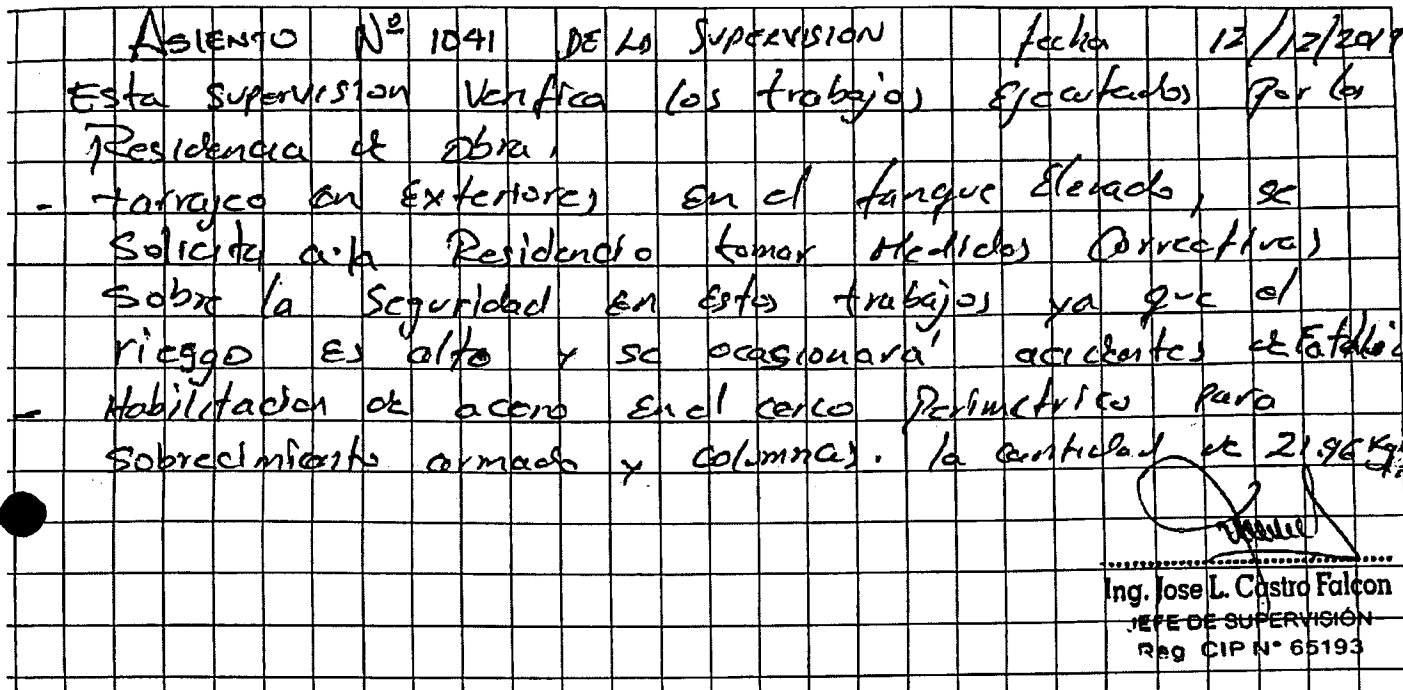 ASIENTO Nº 1041 DE LA SUPERVISION fecha 12/12/2019
Esta supervision Verifica los trabajos Ejecutados por la
Residencia de obra.
- tarrajeo en Exteriores en el tanque Elevado, se
Solicita a la Residencia tomar Medidas Correctivas
Sobre la Seguridad en Estos trabajos ya que el
riesgo Es alto y se ocasionará accidentes
- Habilitacion de acero En el cerco Perimetrico Para
Sobrecimiento armado y columnas. la cantidad de 21.96 Kg
Ing. Jose L. Castro Falcon
JEFE DE SUPERVISIÓN
Reg CIP N° 65193